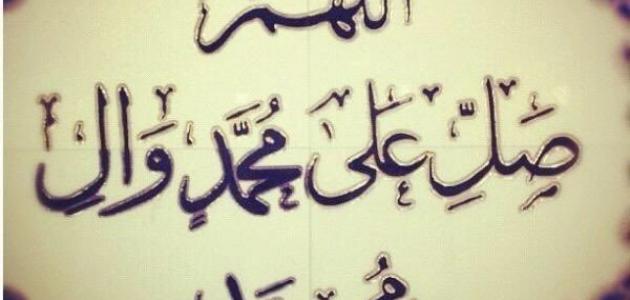 اللهم
صَلِّ عَلَى مُحَمَّدٍ وَالِ